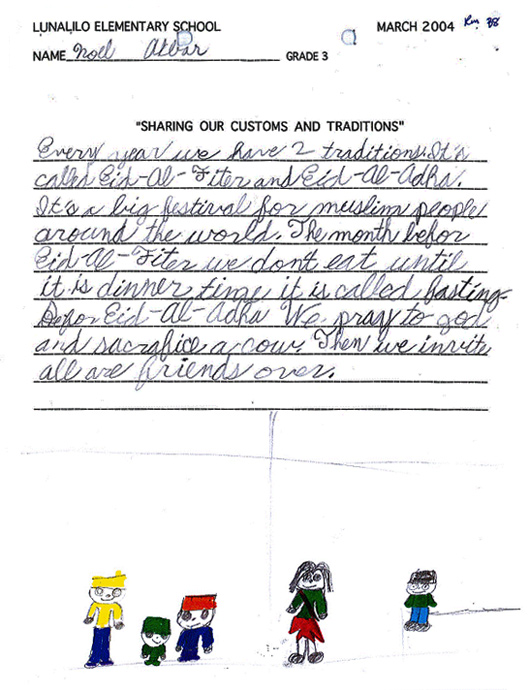 LUNALILO ELEMENTARY SCHOOL MARCH 2004 Rm 38
NAME Noel Akbar GRADE 3
"SHARING OUR CUSTOMS AND TRADITIONS"
Every year we have 2 traditions. It's
called Eid-Al-Fiter and Eid-Al-Adha.
It's a big festival for muslim people
around the world. The month befor
Eid-Al-Fiter we dont eat until
it is dinner time it is called fasting.
Befor Eid-Al-Adha We pray to god
and sacrafice a cow. Then we invite
all are friends over.